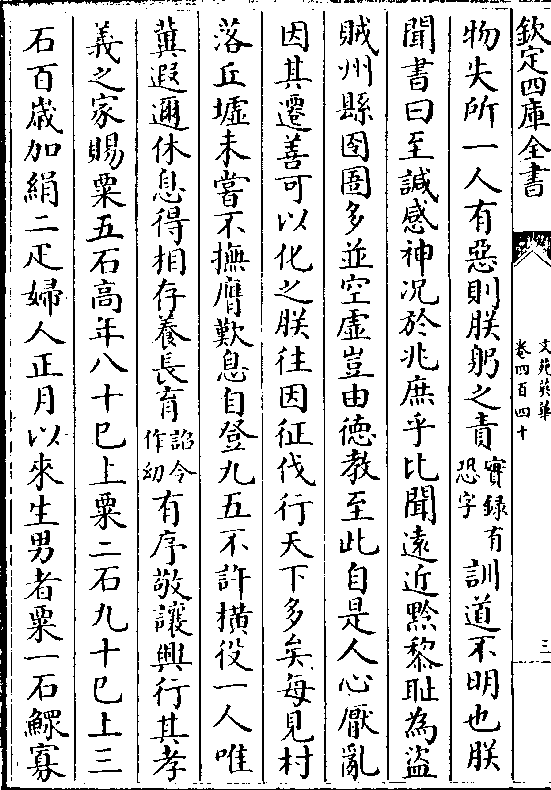 欽定四庫全書
文苑英華
卷四百四十
三
物失所一人有惡則朕躬之責實録有恐字訓道不明也朕
聞書曰至諴感神况於兆庶乎比聞遠近黔黎耻為盗
賊州縣囹圄多並空虚豈由德教至此自是人心厭亂
因其遷善可以化之朕往因征伐行天下多矣每見村
落丘墟未嘗不撫膺歎息自登九五不許横役一人唯
冀遐邇休息得相存養長育詔令作幼有序敬讓興行其孝
義之家賜粟五石高年八十已上粟二石九十已上三
石百歳加絹二疋婦人正月以來生男者粟一石鰥寡